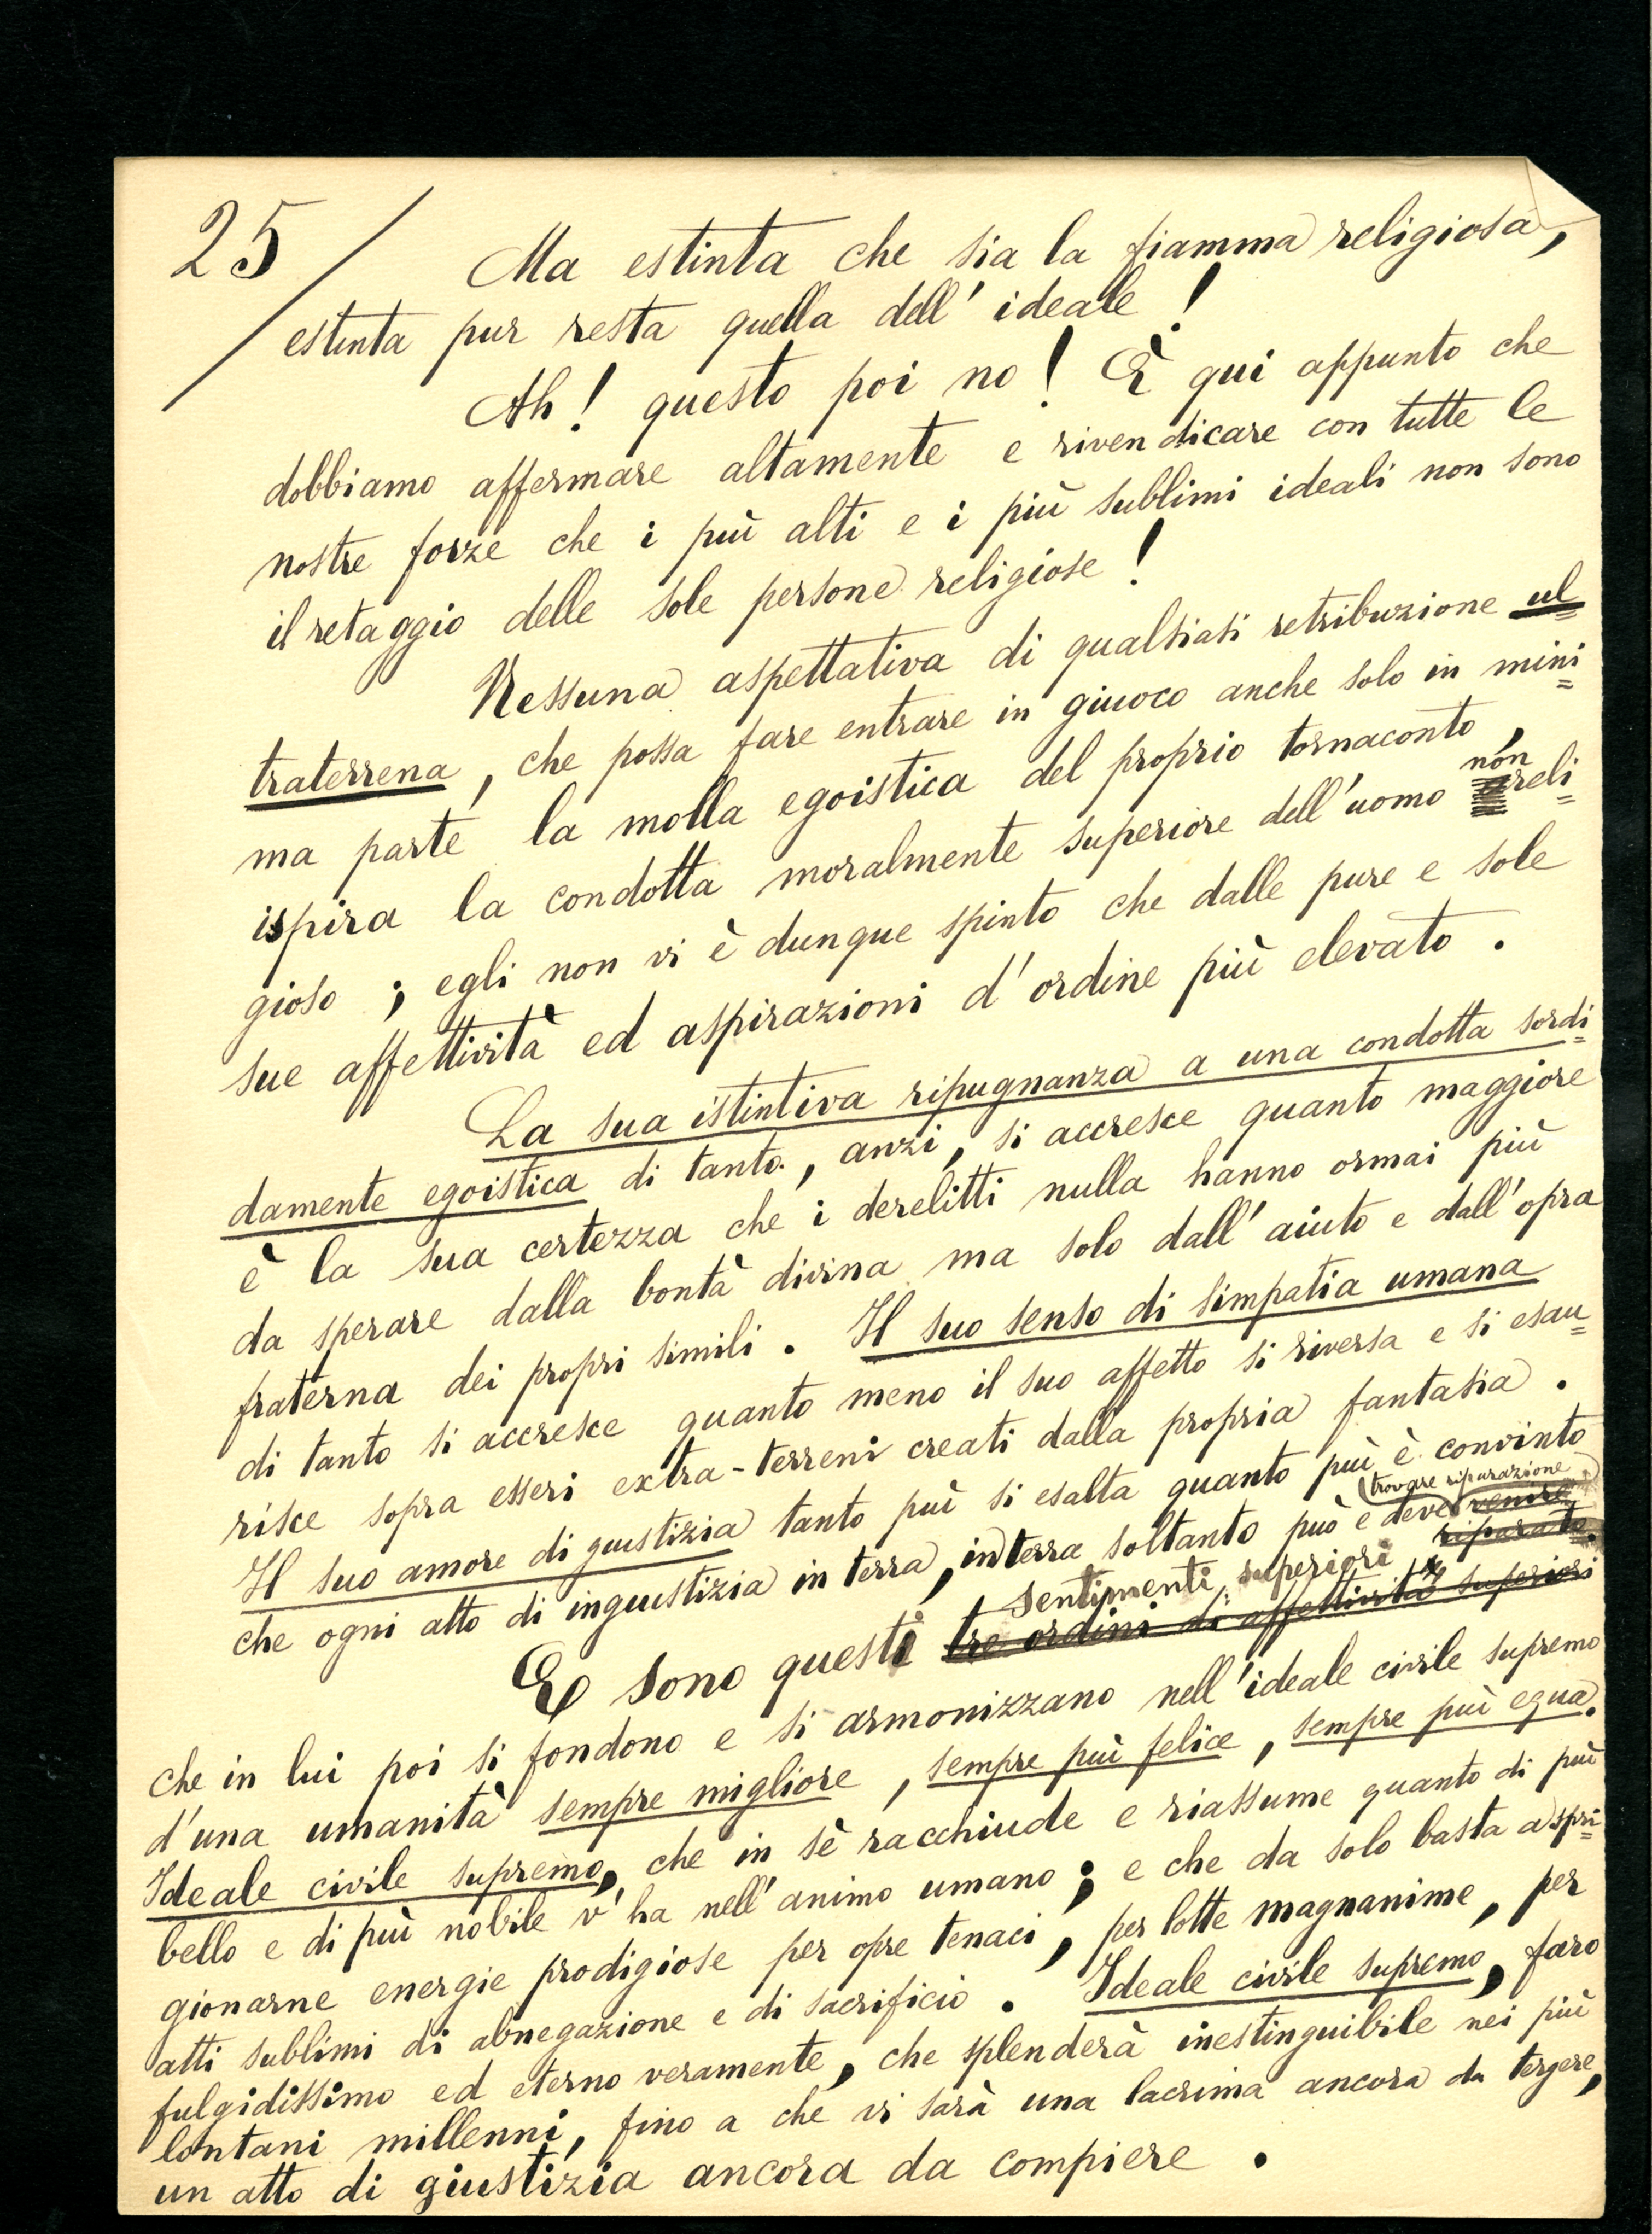 25
Ma estinta che sia la fiamma religiosa,
estinta pur resta quella dell'ideale!
Ah! questo poi no! È qui appunto che
dobbiamo affermare altamente e rivendicare con tutte le
nostre forze che i più alti e i più sublimi ideali non sono
il retaggio delle sole persone religiose!
Nessuna aspettativa di qualsiasi retribuzione ul=
traterrena, che possa fare entrare in giuoco anche solo in mini=
ma parte la molla egoistica del proprio tornaconto,
ispira la condotta moralmente superiore dell'uomo non reli=
gioso; egli non vi è dunque spinto che dalle pure e sole
sue affettività ed aspirazioni d'ordine più elevato.
La sua istintiva ripugnanza a una condotta sordi=
damente egoistica di tanto, anzi, si accresce quanto maggiore
è la sua certezza che i derelitti nulla hanno ormai più
da sperare dalla bontà divina ma solo dall'aiuto e dall'opra
fraterna dei propri simili. Il suo senso di simpatia umana
di tanto si accresce quanto meno il suo affetto si riversa e si esau=
risce sopra esseri extra-terreni creati dalla propria fantasia.
Il suo amore di giustizia tanto più si esalta quanto più è convinto
che ogni atto di ingiustizia in terra, in terra soltanto può e deve trovare riparazione venire
riparato.
E sono questi sentimenti superiori tre ordini di affettività superiori
che in lui poi si fondono e si armonizzano nell'ideale civile supremo
d'una umanità sempre migliore, sempre più felice, sempre più equa.
Ideale civile supremo, che in sè racchiude e riassume quanto di più
bello e di più nobile v'ha nell'animo umano; e che da solo basta a spri=
gionarne energie prodigiose per opre tenaci, per lotte magnanime, per
atti sublimi di abnegazione e di sacrificio. Ideale civile supremo, faro
fulgidissimo ed eterno veramente, che splenderà inestinguibile nei più
lontani millenni, fino a che vi sarà una lacrima ancora da tergere,
un atto di giustizia ancora da compiere.